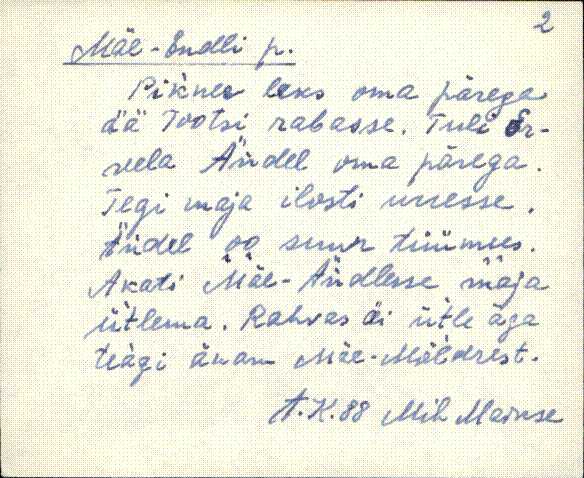 2
Mäe-Endli p.
Pikner leks oma pärega
dä Tootsi rabasse. Tuli Er-
vela Ändel oma pärega.
Tegi maja ilosti uuesse.
Ändel oo suur tüümees.
Akati Mäe-Ändlesse maja
ütlema. Rahvas äi ütle äga
teägi änam Mäe-Möldrest.
A.K. 88 Mih Mainse